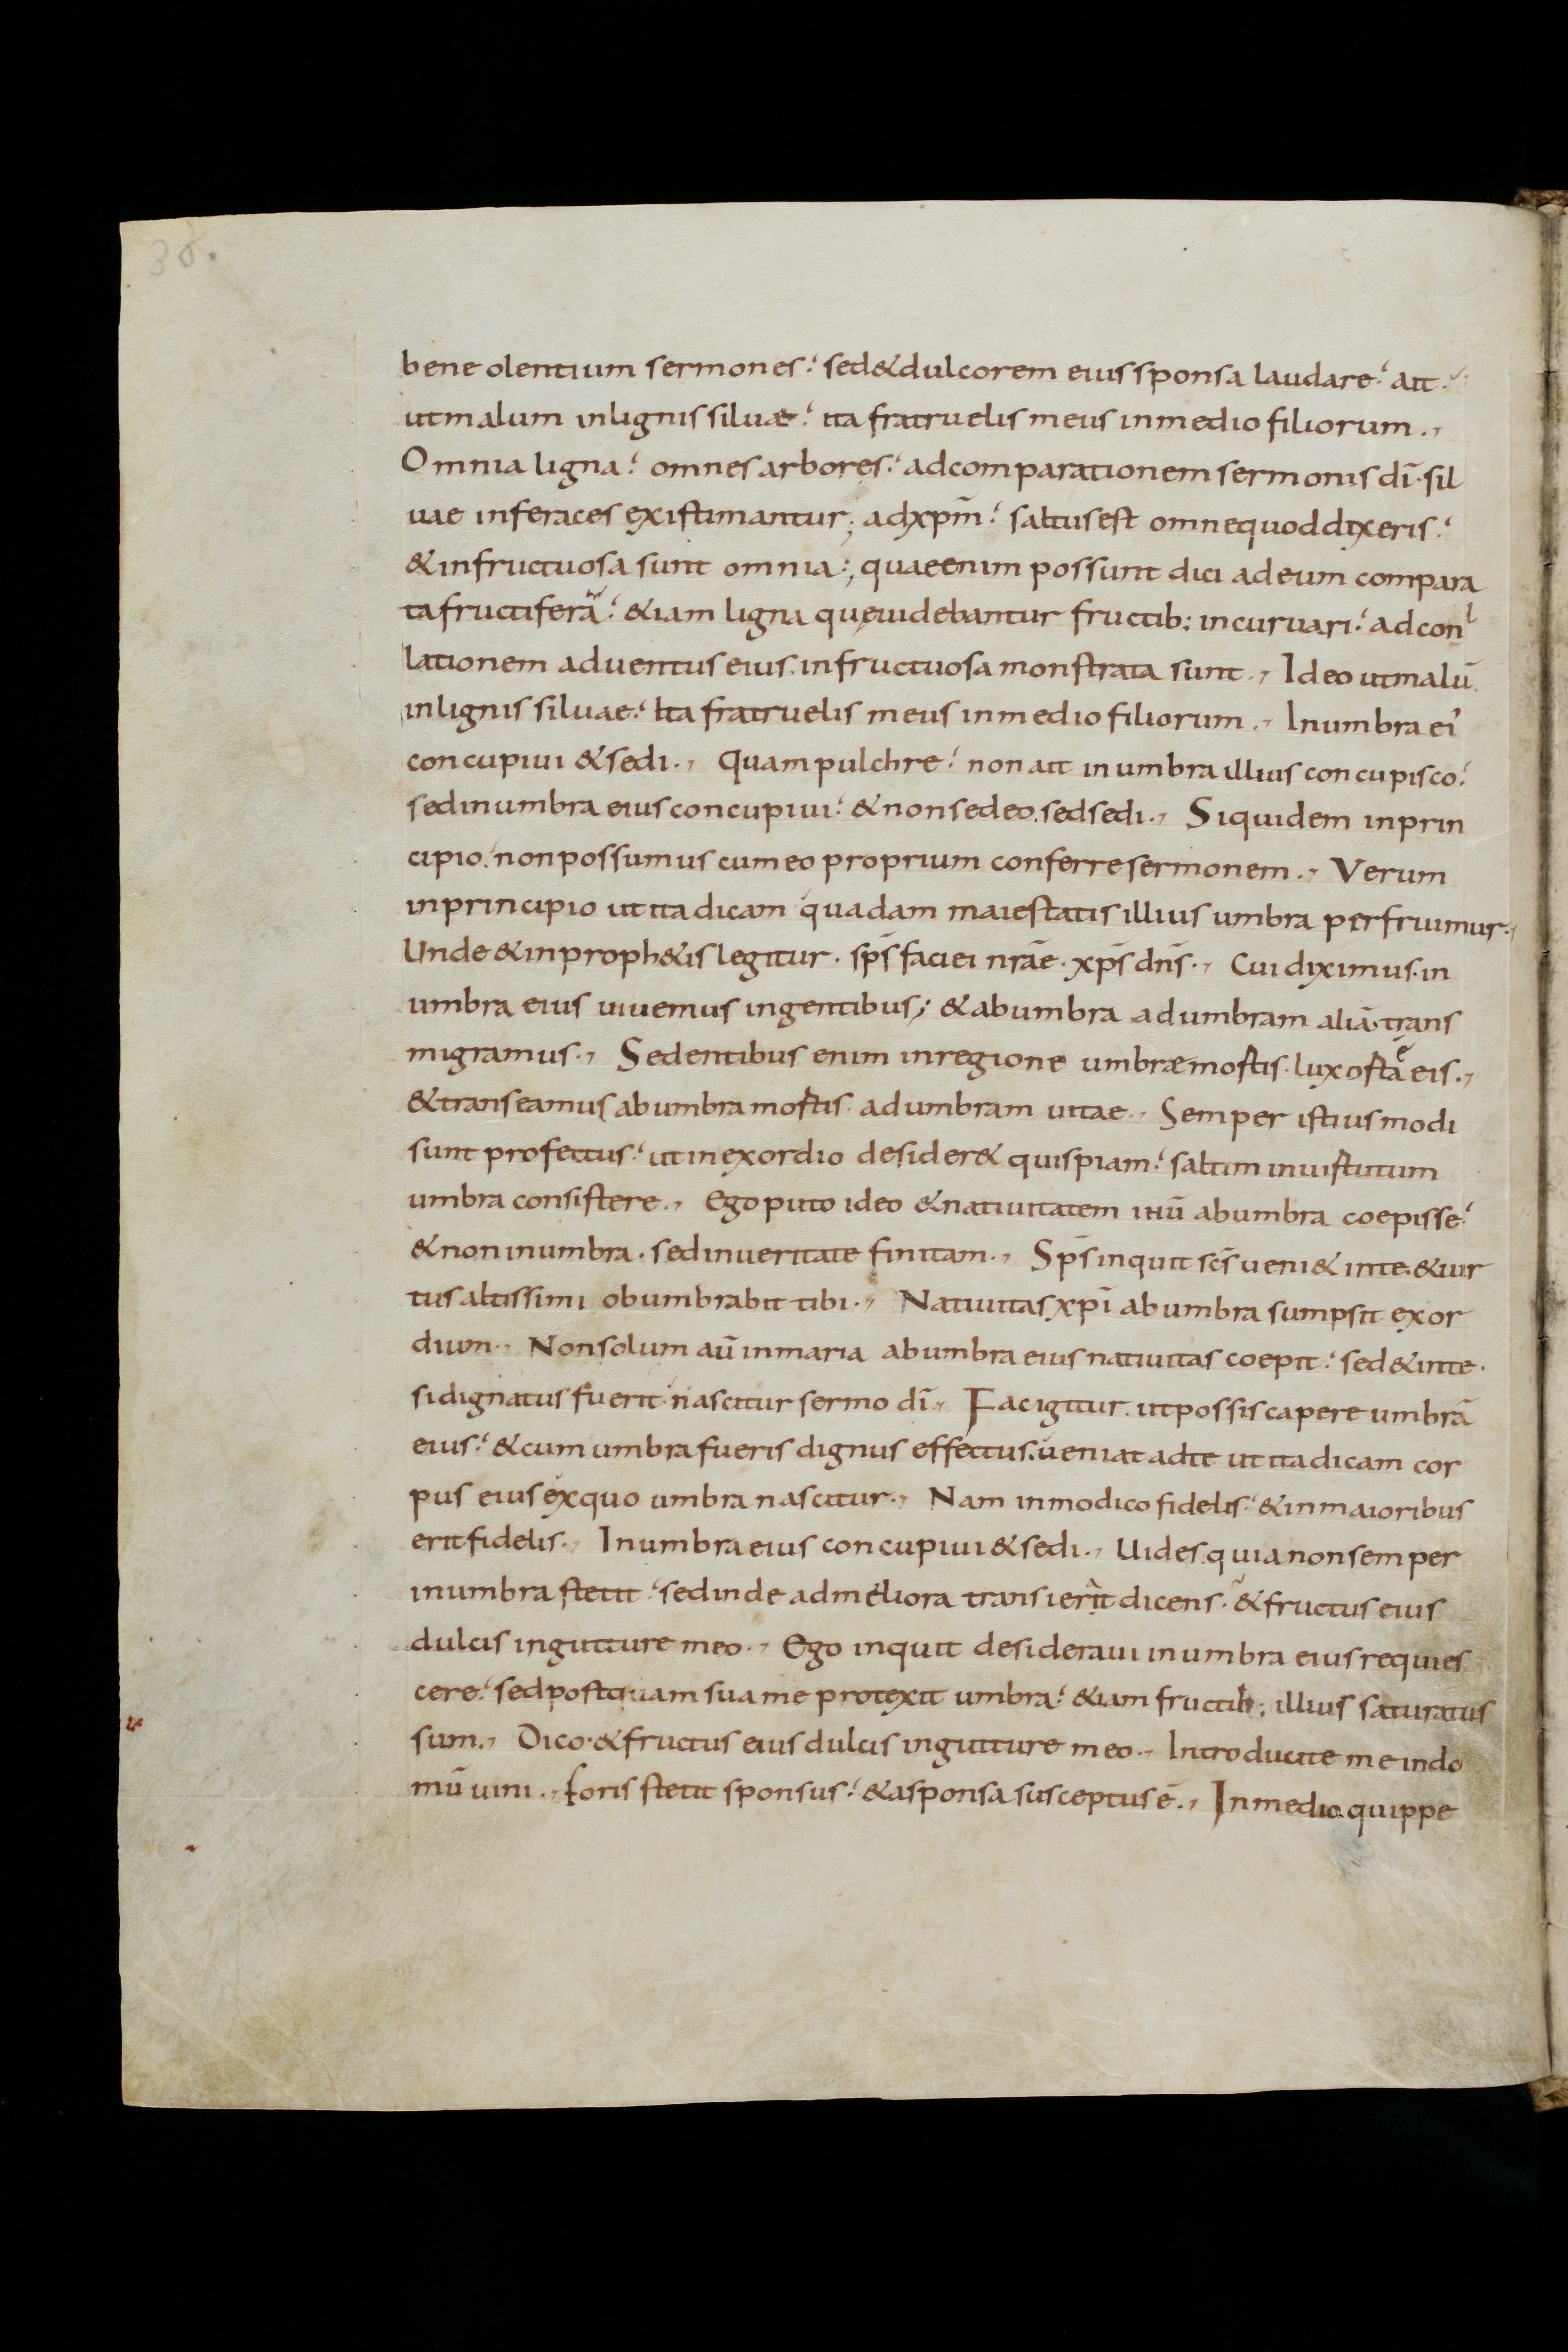 36.
bene olentium sermones. sed & dulcorem eius sponsa laudare. ait.
ut malum in lignis siluae. ita fratruelis meus in medio filiorum.,
Omnia ligna. omnes arbores. ad comparationem sermonis dī. sil
uae inferaces existimantur; ad xpm̄. saltus est omne quod dixeris.
& infructuosa sunt omnia; quae enim possunt dici ad eum compara
ta fructifera. & iam ligna que uidebantur fructib: incuruari. ad con
lationem aduentus eius. infructuosa monstrata sunt., Ideo ut malū
in lignis siluae. Ita fratruelis meus in medio filiorum., In umbra ei'
concupiui & sedi., Quam pulchre. non ait in umbra illius concupisco.
sed in umbra eius concupiui. & non sedeo. sed sedi., Siquidem in prin
cipio. non possumus cum eo proprium conferre sermonem., Verum
in principio ut ita dicam quadam maiestatis illius umbra perfruimur.,
Unde & in proph&is legitur. sps̄ faciei nrāe. xps̄ dn̄s., Cui diximus. in
umbra eius uiuemus in gentibus; & ab umbra ad umbram aliā. trans
migramus., Sedentibus enim in regione umbrae mortis. lux orta ē eis.,
& transeamus ab umbra mortis. ad umbram uitae., Semper istius modi
sunt profectus. ut in exordio desider& quispiam. saltim in uirtutum
umbra consistere., Ego puto ideo & natiuitatem ihū ab umbra coepisse.
& non in umbra. sed in ueritate finitam., Sps̄ inquit scs̄ ueni& in te. & uir
tus altissimi obumbrabit tibi., Natiuitas xpī ab umbra sumpsit exor
dium., Non solum aū in maria ab umbra eius natiuitas coepit. sed & in te.
si dignatus fuerit. nascitur sermo dī., Fac igitur. ut possis capere umbrā
eius. & cum umbra fueris dignus effectus. ueniat ad te ut ita dicam cor
pus eius ex quo umbra nascitur., Nam in modico fidelis. & in maioribus
erit fidelis., In umbra eius concupiui & sedi., Uides. quia non semper
in umbra stetit. sed inde ad meliora transierit dicens. & fructus eius
dulcis in gutture meo., Ego inquit desideraui in umbra eius requies
cere. sed postquam sua me protexit umbra. & iam fructib; illius saturatus
sum., Dico. & fructus eius dulcis in gutture meo., Introducite me in do
mū uini., foris stetit sponsus. & a sponsa susceptus ē., In medio quippe